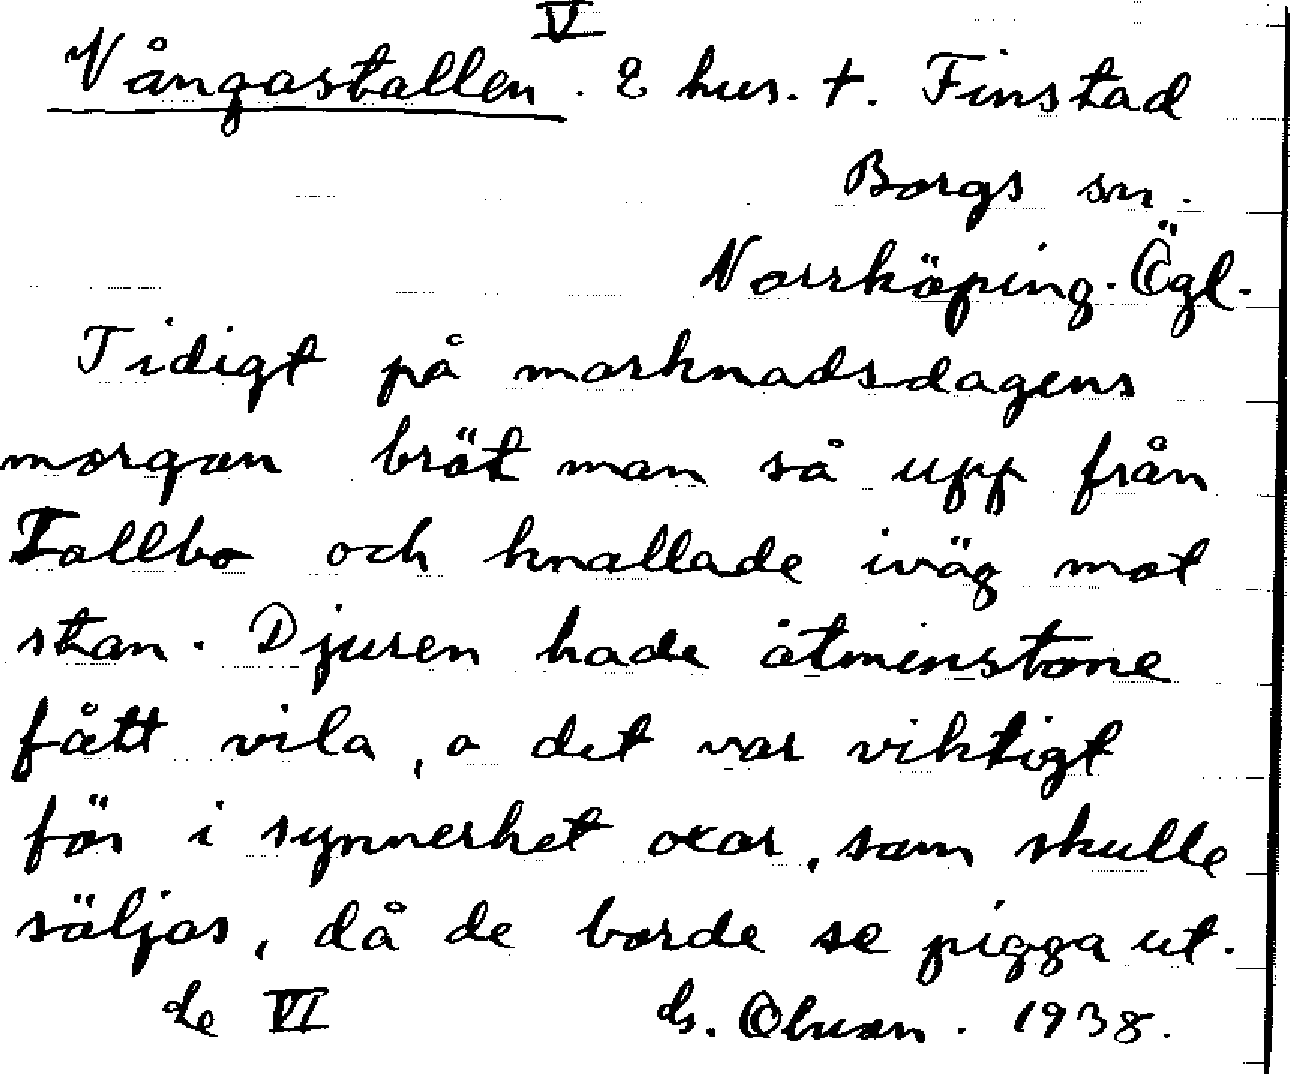 V
Vångastallen. 2 hus. t. Finstad
Borgs sn.
Norrköping. Ögl.
Tidigt på marknadsdagens
morgon bröt man så upp från
Tallbo och knallade iväg mot
stan. Djuren hade åtminstone
fått vila, o det var viktigt
för i synnerhet oxar, som skulle
säljas, då de borde se pigga ut.
VI 1938.